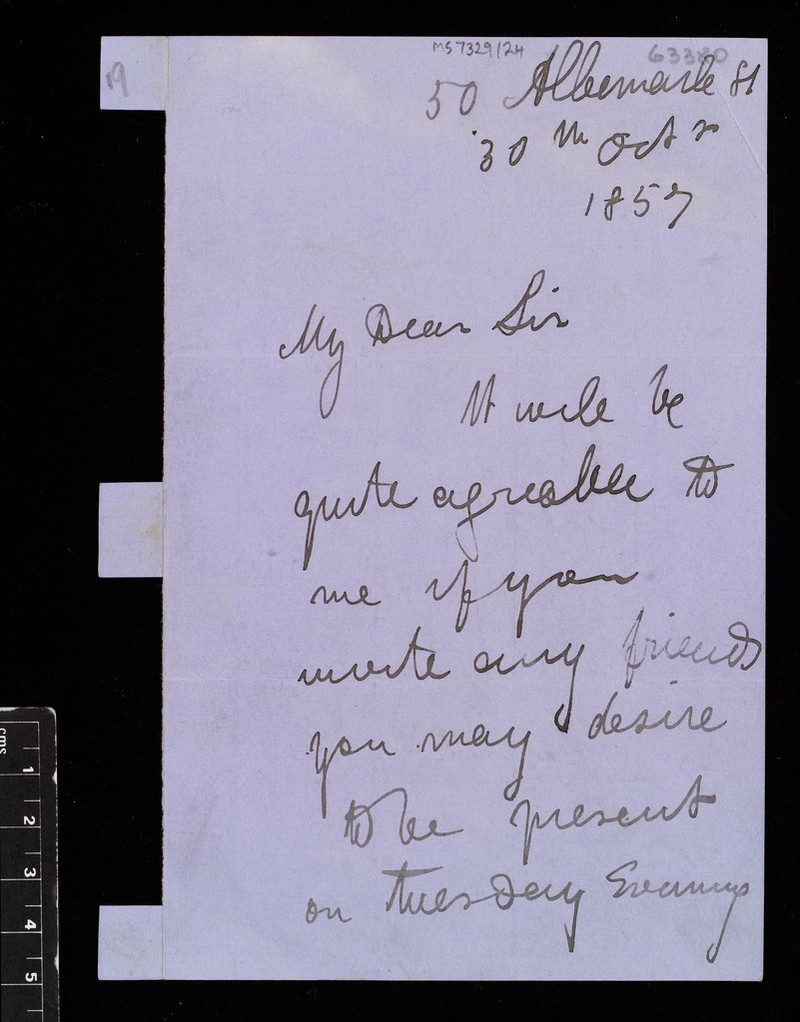 MS 7329/24
63380
19
50 Albemarle St
30th Octr
1857
My Dear Sir
It will be
quite agreable to
me if you
invite any friends
you may desire
to be present
on Tuesday Evening
cms
1
2
3
4
5